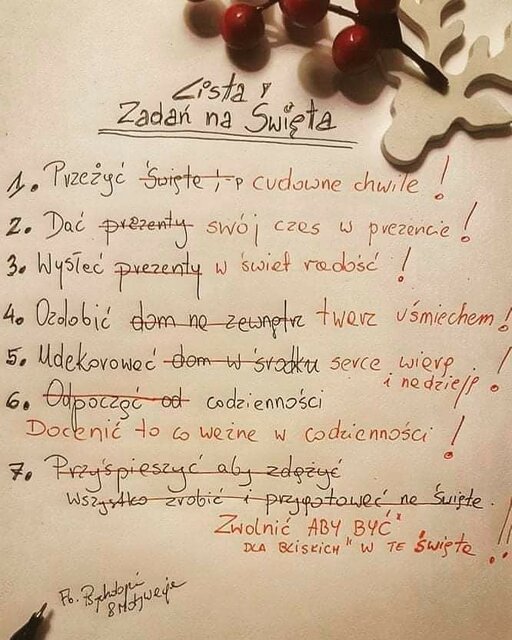 Lista
Zadań na Święta
1. Przeżyć Święta ;-P cudowne chwile !
2. Dać prezenty swój czas w prezencie !
3. Wysłać prezenty w świat radość !
4. Ozdobić dom na zewnątrz twarz uśmiechem !
5. Udekorować dom w środku serce wiarą
i nadzieją !
6. Odpocząć od codzienności
Docenić to co ważne w codzienności !
7. Przyśpieszyć aby zdążyć
wszystko zrobić i przygotować na Święta.
Zwolnić ABY BYĆ
DLA BLISKICH" W TE Święta !!
Fb. Psychologia
& Motywacja